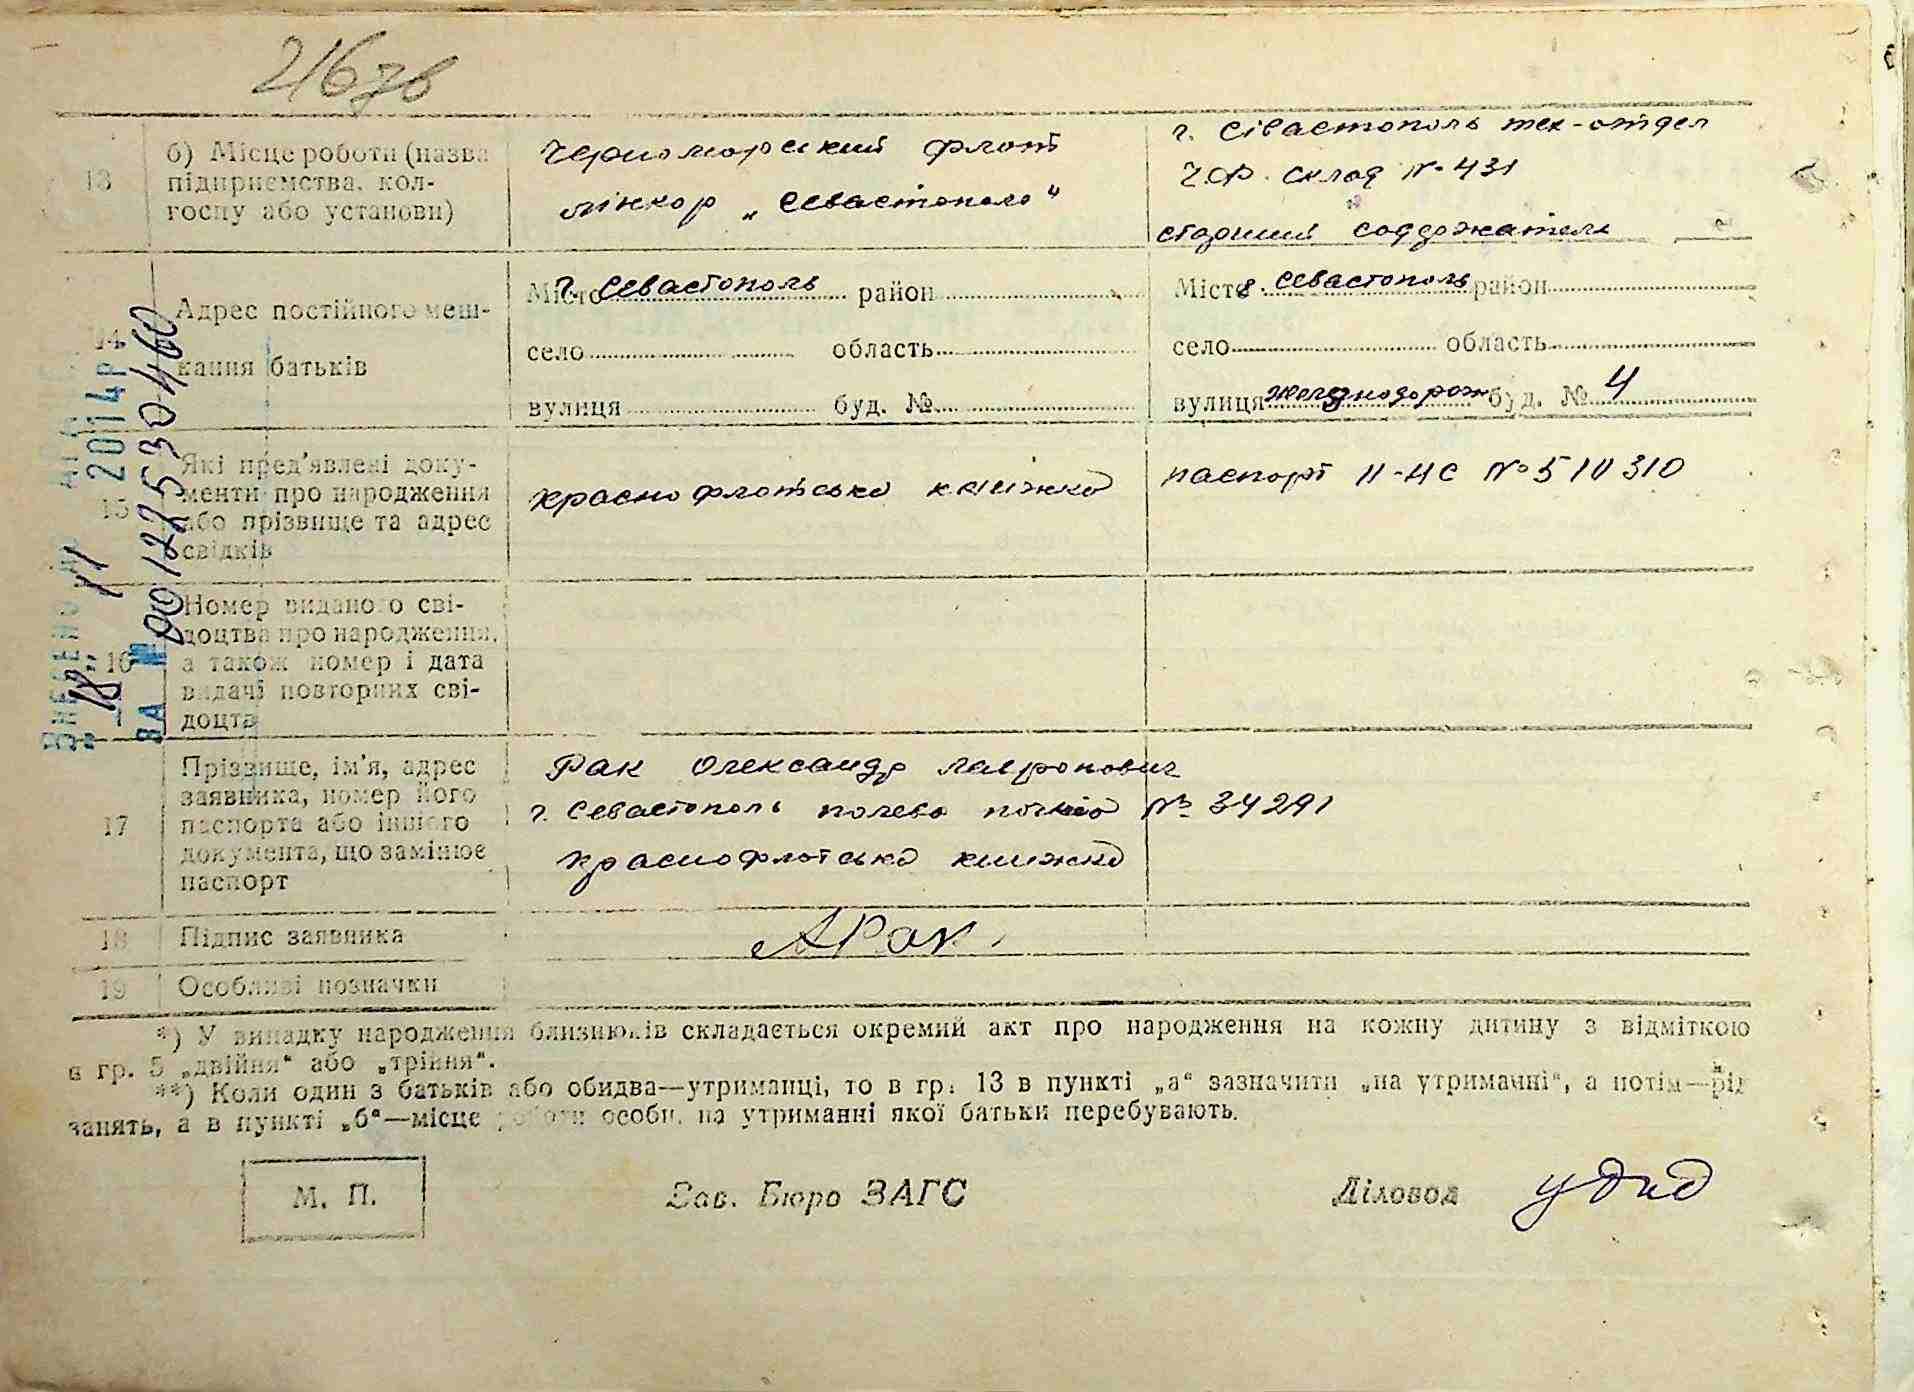 216зв
13
б) Місце роботи (назва
підприємства, кол-
госпу або установи)
Черноморский флот
лінкор „Севастополь"
г. Сівастополь тех-отдел
Ч.Ф. склад № 431
старший
14
Адрес постійного меш-
кання батьків
Місто г. Севастополь район
село область
вулиця буд. №
Місто г. Севастополь район
село область
вулиця буд. № 4
15
Які пред'явлені доку-
менти про народження
або прізвище та адрес
свідків
краснофлотська книжка
паспорт II-НС № 511310
16
Номер виданого сві-
доцтва про народження,
а також номер і дата
видачі повторних сві-
доцтв
17
Прізвище, ім'я, адрес
заявника, номер його
паспорта або іншого
документа, що замінює
паспорт
Рак Олександр
г. Севастополь полева почта № 34291
краснофлотська книжка
18
Підпис заявника
АРак
19
Особливі позначки
*) У випадку народження близнюків складається окремий акт про народження на кожну дитину з відміткою
в гр. 5 „двійня" або „трійня".
**) Коли один з батьків або обидва—утриманці, то в гр. 13 в пункті „а" зазначити „на утриманні", а потім—рід
занять, а в пункті „б"—місце роботи особи, на утриманні якої батьки перебувають.
М. П.
Зав. Бюро ЗАГС
Діловод
ВНЕСЕНО
„18" 11 2014р
ЗА № 00122530460